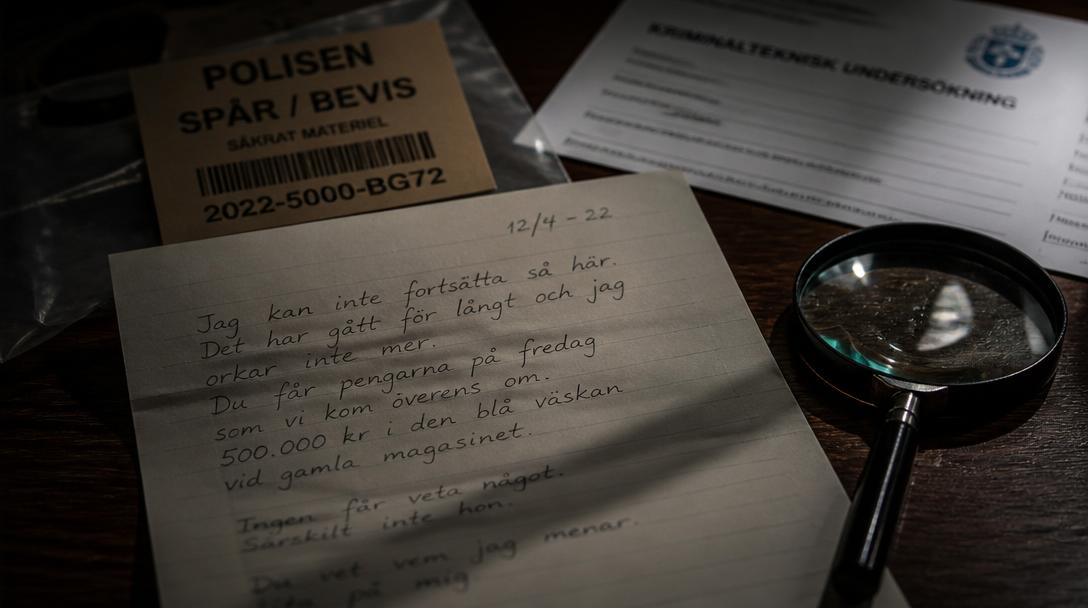 POLISEN
SPÅR / BEVIS
SÄKRAT MATERIEL
2022-5000-BG72
KRIMINALTEKNISK UNDERSÖKNING
12/4 - 22
Jag kan inte fortsätta så här.
Det har gått för långt och jag
orkar inte mer.
Du får pengarna på fredag
som vi kom överens om.
500.000 kr i den blå väskan
vid gamla magasinet.
Ingen får veta något.
Särskilt inte hon.
Du vet vem jag menar.
på mig